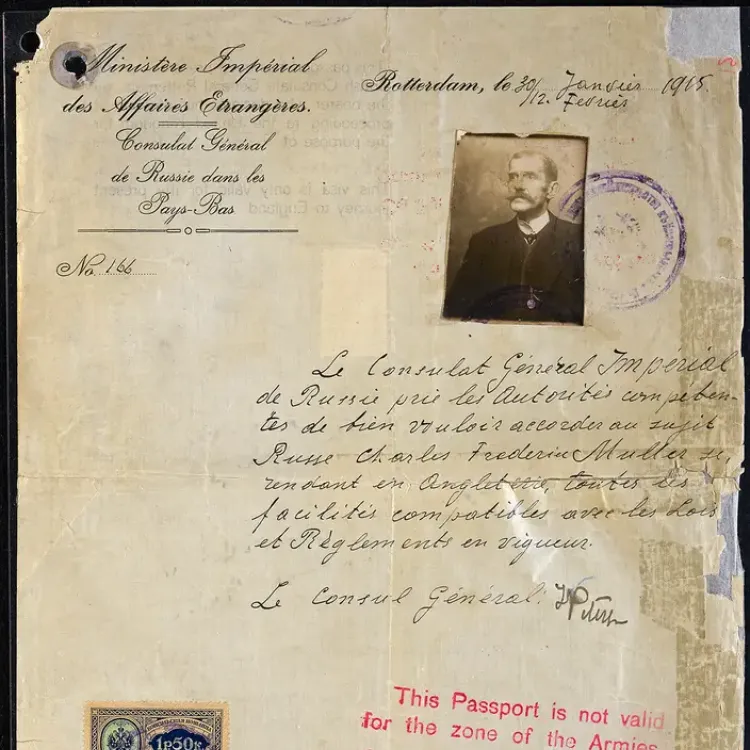 Ministère Impérial
des Affaires Etrangères.
Consulat Général
de Russie dans les
Pays-Bas
No. 166
Rotterdam, le 30/12. Janvier/Fevrièr 1915
Le Consulat Général Impérial
de Russie prie les Autorités compéten-
tes de bien vouloir accorder au sujet
Russe Charles Frederic Muller se
rendant en Angleterre, toutes les
facilités compatibles avec les Lois
et Règlements en vigueur.
Le Consul Général:
1р50к
This Passport is not valid
for the zone of the Armies